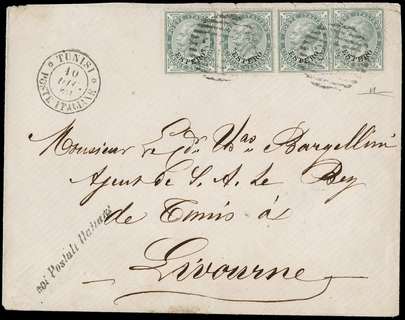 TUNISI
10
POSTE ITALIANE
ESTERO ESTERO ESTERO ESTERO
Monsieur Le Bargellini
Agent de S. A. Le Bey
de Tunis à
Livourne
Postali Italiani